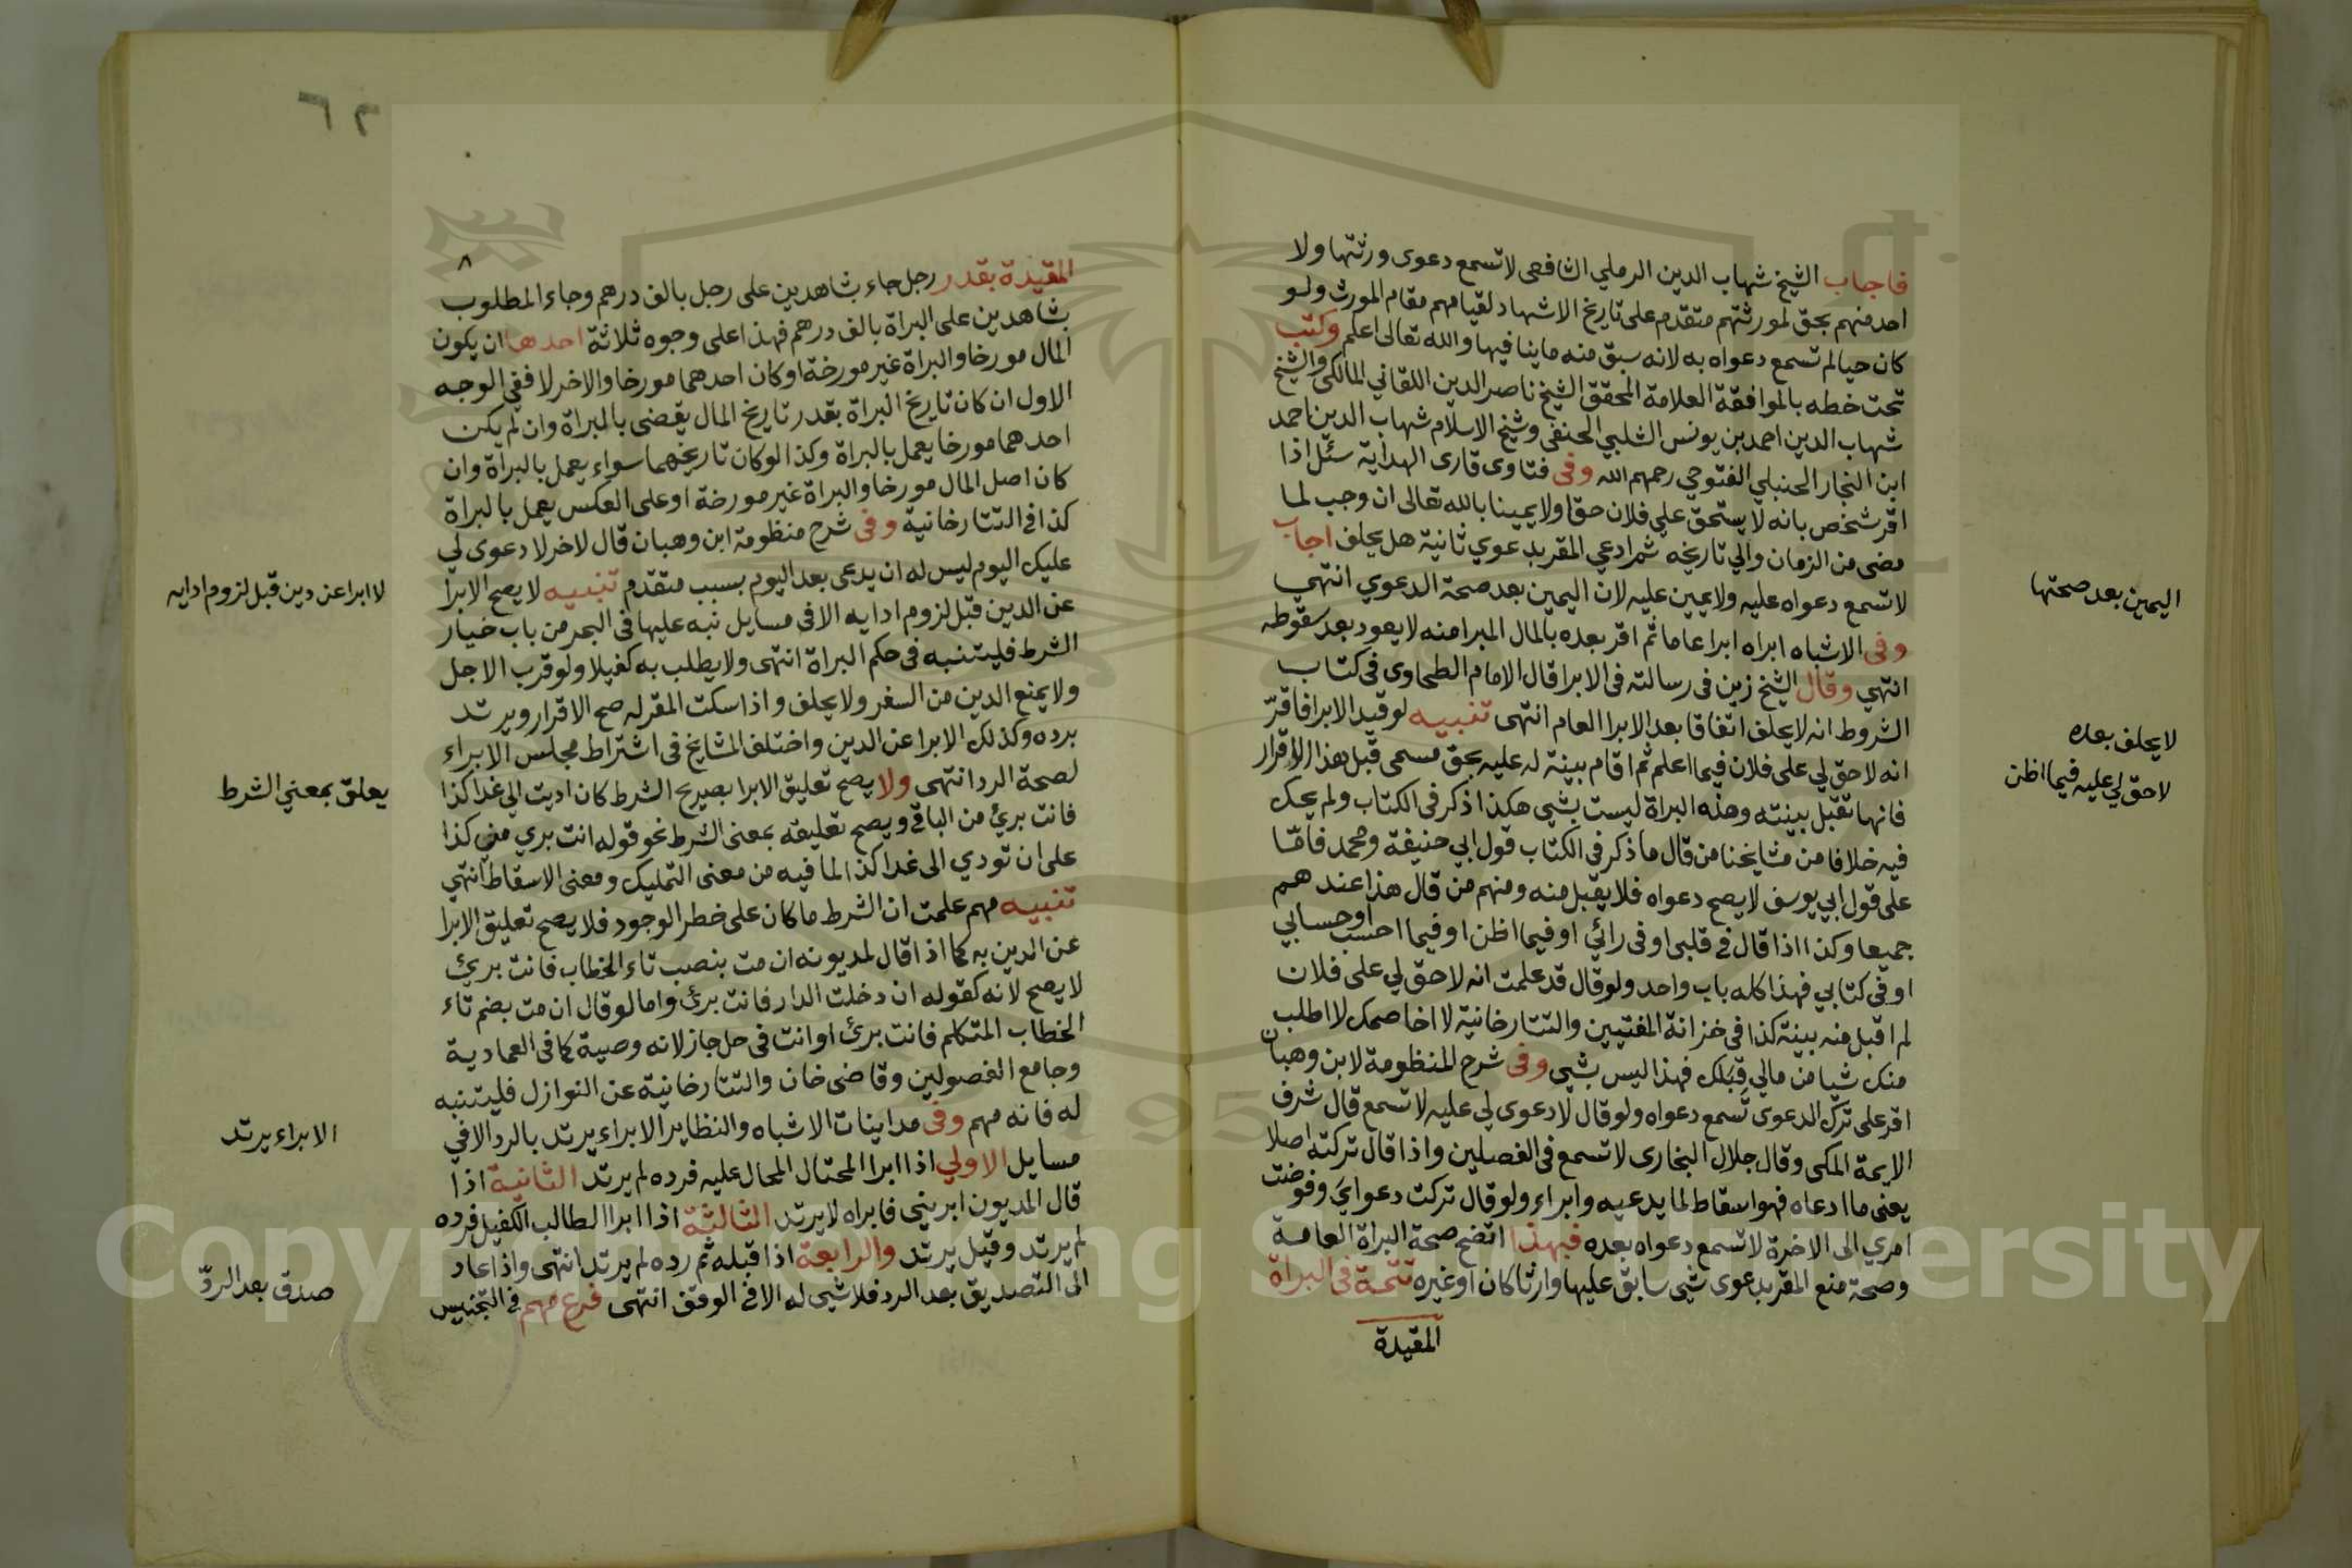 فاجاب الشيخ شهاب الدين الرملي الشافعى لا تسمع دعوى ورثتها ولا
احد منهم بحق لمورثتهم متقدم على تاريخ الاشهاد لقيامهم مقام المورث ولو
كان حيا لم تسمع دعواه به لانه سبق منه ما ينافيها والله تعالى اعلم وكتب
تحت خطه بالموافقة العلامة المحقق الشيخ ناصر الدين اللقاني المالكى والشيخ
شهاب الدين احمد بن يونس الشلبي الحنفى وشيخ الاسلام شهاب الدين احمد
ابن النجار الحنبلي الفتوحي رحمهم الله وفى فتاوى قارى الهداية سئل اذا
اقر شخص بانه لا يستحق علي فلان حقا ولا يمينا بالله تعالى ان وجب لما
مضى من الزمان والي تاريخه ثم ادعي المقر بدعوي ثانية هل يحلف اجاب
لا تسمع دعواه عليه ولا يمين عليه لان اليمين بعد صحة الدعوي انتهي
وفى الاشباه ابراه ابرا عاما ثم اقر بعده بالمال المبرا منه لا يعود بعد سقوطه
انتهي وقال الشيخ زين فى رسالته فى الابرا قال الامام الطحاوى فى كتاب
الشروط انه لا يحلف اتفاقا بعد الابرا العام انتهى تنبيه لو قيد الابرا فاقرّ
انه لا حق لي على فلان فيما اعلم ثم اقام بينة له عليه بحق مسمى قبل هذا الاقرار
فانها تقبل بينته وهذه البراة ليست بشيى هكذا ذكر فى الكتاب ولم يحك
فيه خلافا من مشايخنا من قال ما ذكر في الكتاب قول ابي حنيفة ومحمد فامّا
على قول ابي يوسف لا يصح دعواه فلا يقبل منه ومنهم من قال هذا عندهم
جميعا وكذا اذا قال في قلبى او فى رائي او فيما اظن او فيما احسب او حسابي
او في كتابي فهذا كله باب واحد ولو قال قد علمت انه لا حق لي على فلان
لم اقبل منه بينة كذا فى خزانة المفتيين والتتارخانية لا اخاصمك لا اطلب
منك شيا من مالي قبلك فهذا ليس بشيى وفى شرح المنظومة لابن وهبان
اقر على ترك الدعوى تسمع دعواه ولو قال لا دعوى لي عليه لا تسمع قال شرف
الايمة المكى وقال جلال البخارى لا تسمع فى الفصلين واذا قال تركته اصلا
يعنى ما ادعاه فهو اسقاط لما يدعيه وابراء ولو قال تركت دعواي وفوضت
امري الى الاخرة لا تسمع دعواه بعده فبهذا اتضح صحة البراة العامة
وصحة منع المقر بدعوى شيى سابق عليها وارثا كان او غيره تتمة فى البراة
المقيدة
اليمين بعد صحتها
لا يحلف بعده
لا حق لي عليه فيما اظن
٦٢
٨
المقيدة بقدر رجل جاء بشاهدين على رجل بالف درهم وجاء المطلوب
بشاهدين على البراة بالف درهم فهذا على وجوه ثلاثة احدها ان يكون
المال مورخا والبراة غير مورخة او كان احدهما مورخا والاخر لا ففي الوجه
الاول ان كان تاريخ البراة بقدر تاريخ المال يقضى بالبراة وان لم يكن
احدهما مورخا يعمل بالبراة وكذا لو كان تاريخهما سواء يعمل بالبراة وان
كان اصل المال مورخا والبراة غير مورخة او على العكس يعمل بالبراة
كذا في التتارخانية وفى شرح منظومة ابن وهبان قال لاخر لا دعوى لي
عليك اليوم ليس له ان يدعى بعد اليوم بسبب متقدم تنبيه لا يصح الابرا
عن الدين قبل لزوم ادايه الا فى مسايل نبه عليها فى البحر من باب خيار
الشرط فليتنبه فى حكم البراة انتهى ولا يطلب به كفيلا ولو قرب الاجل
ولا يمنع الدين من السفر ولا يحلف واذا سكت المقر له صح الاقرار ويرتد
برده وكذلك الابرا عن الدين واختلف المشايخ فى اشتراط مجلس الابراء
لصحة الرد انتهى ولا يصح تعليق الابرا بصريح الشرط كان اديت الي غدا كذا
فانت برئ من الباقي ويصح تعليقه بمعنى الشرط نحو قوله انت بري مني كذا
على ان تودي الى غدا كذا لما فيه من معنى التمليك ومعنى الاسقاط انتهي
تنبيه مهم علمت ان الشرط ما كان على خطر الوجود فلا يصح تعليق الابرا
عن الدين به كما اذا قال لمديونه ان مت بنصب تاء الخطاب فانت برئ
لا يصح لانه كقوله ان دخلت الدار فانت برئ واما لو قال ان مت بضم تاء
الخطاب المتكلم فانت برئ او انت فى حل جاز لانه وصية كما فى العمادية
وجامع الفصولين وقاضى خان والتتارخانية عن النوازل فليتنبه
له فانه مهم وفى مداينات الاشباه والنظاير الابراء يرتد بالرد الا في
مسايل الاولي اذا ابرا المحتال المحال عليه فرده لم يرتد الثانية اذا
قال المديون ابريني فابراه لا يرتد الثالثة اذا ابرا الطالب الكفيل فرده
لم يرتد وقيل يرتد والرابعة اذا قبله ثم رده لم يرتد انتهى واذا عاد
الى التصديق بعد الرد فلا شيى له الا في الوقف انتهى فرع مهم في التجنيس
لا ابرا عن دين قبل لزوم ادايه
يعلق بمعني الشرط
الابراء يرتد
صدق بعد الردّ
Copyright © King Saud University